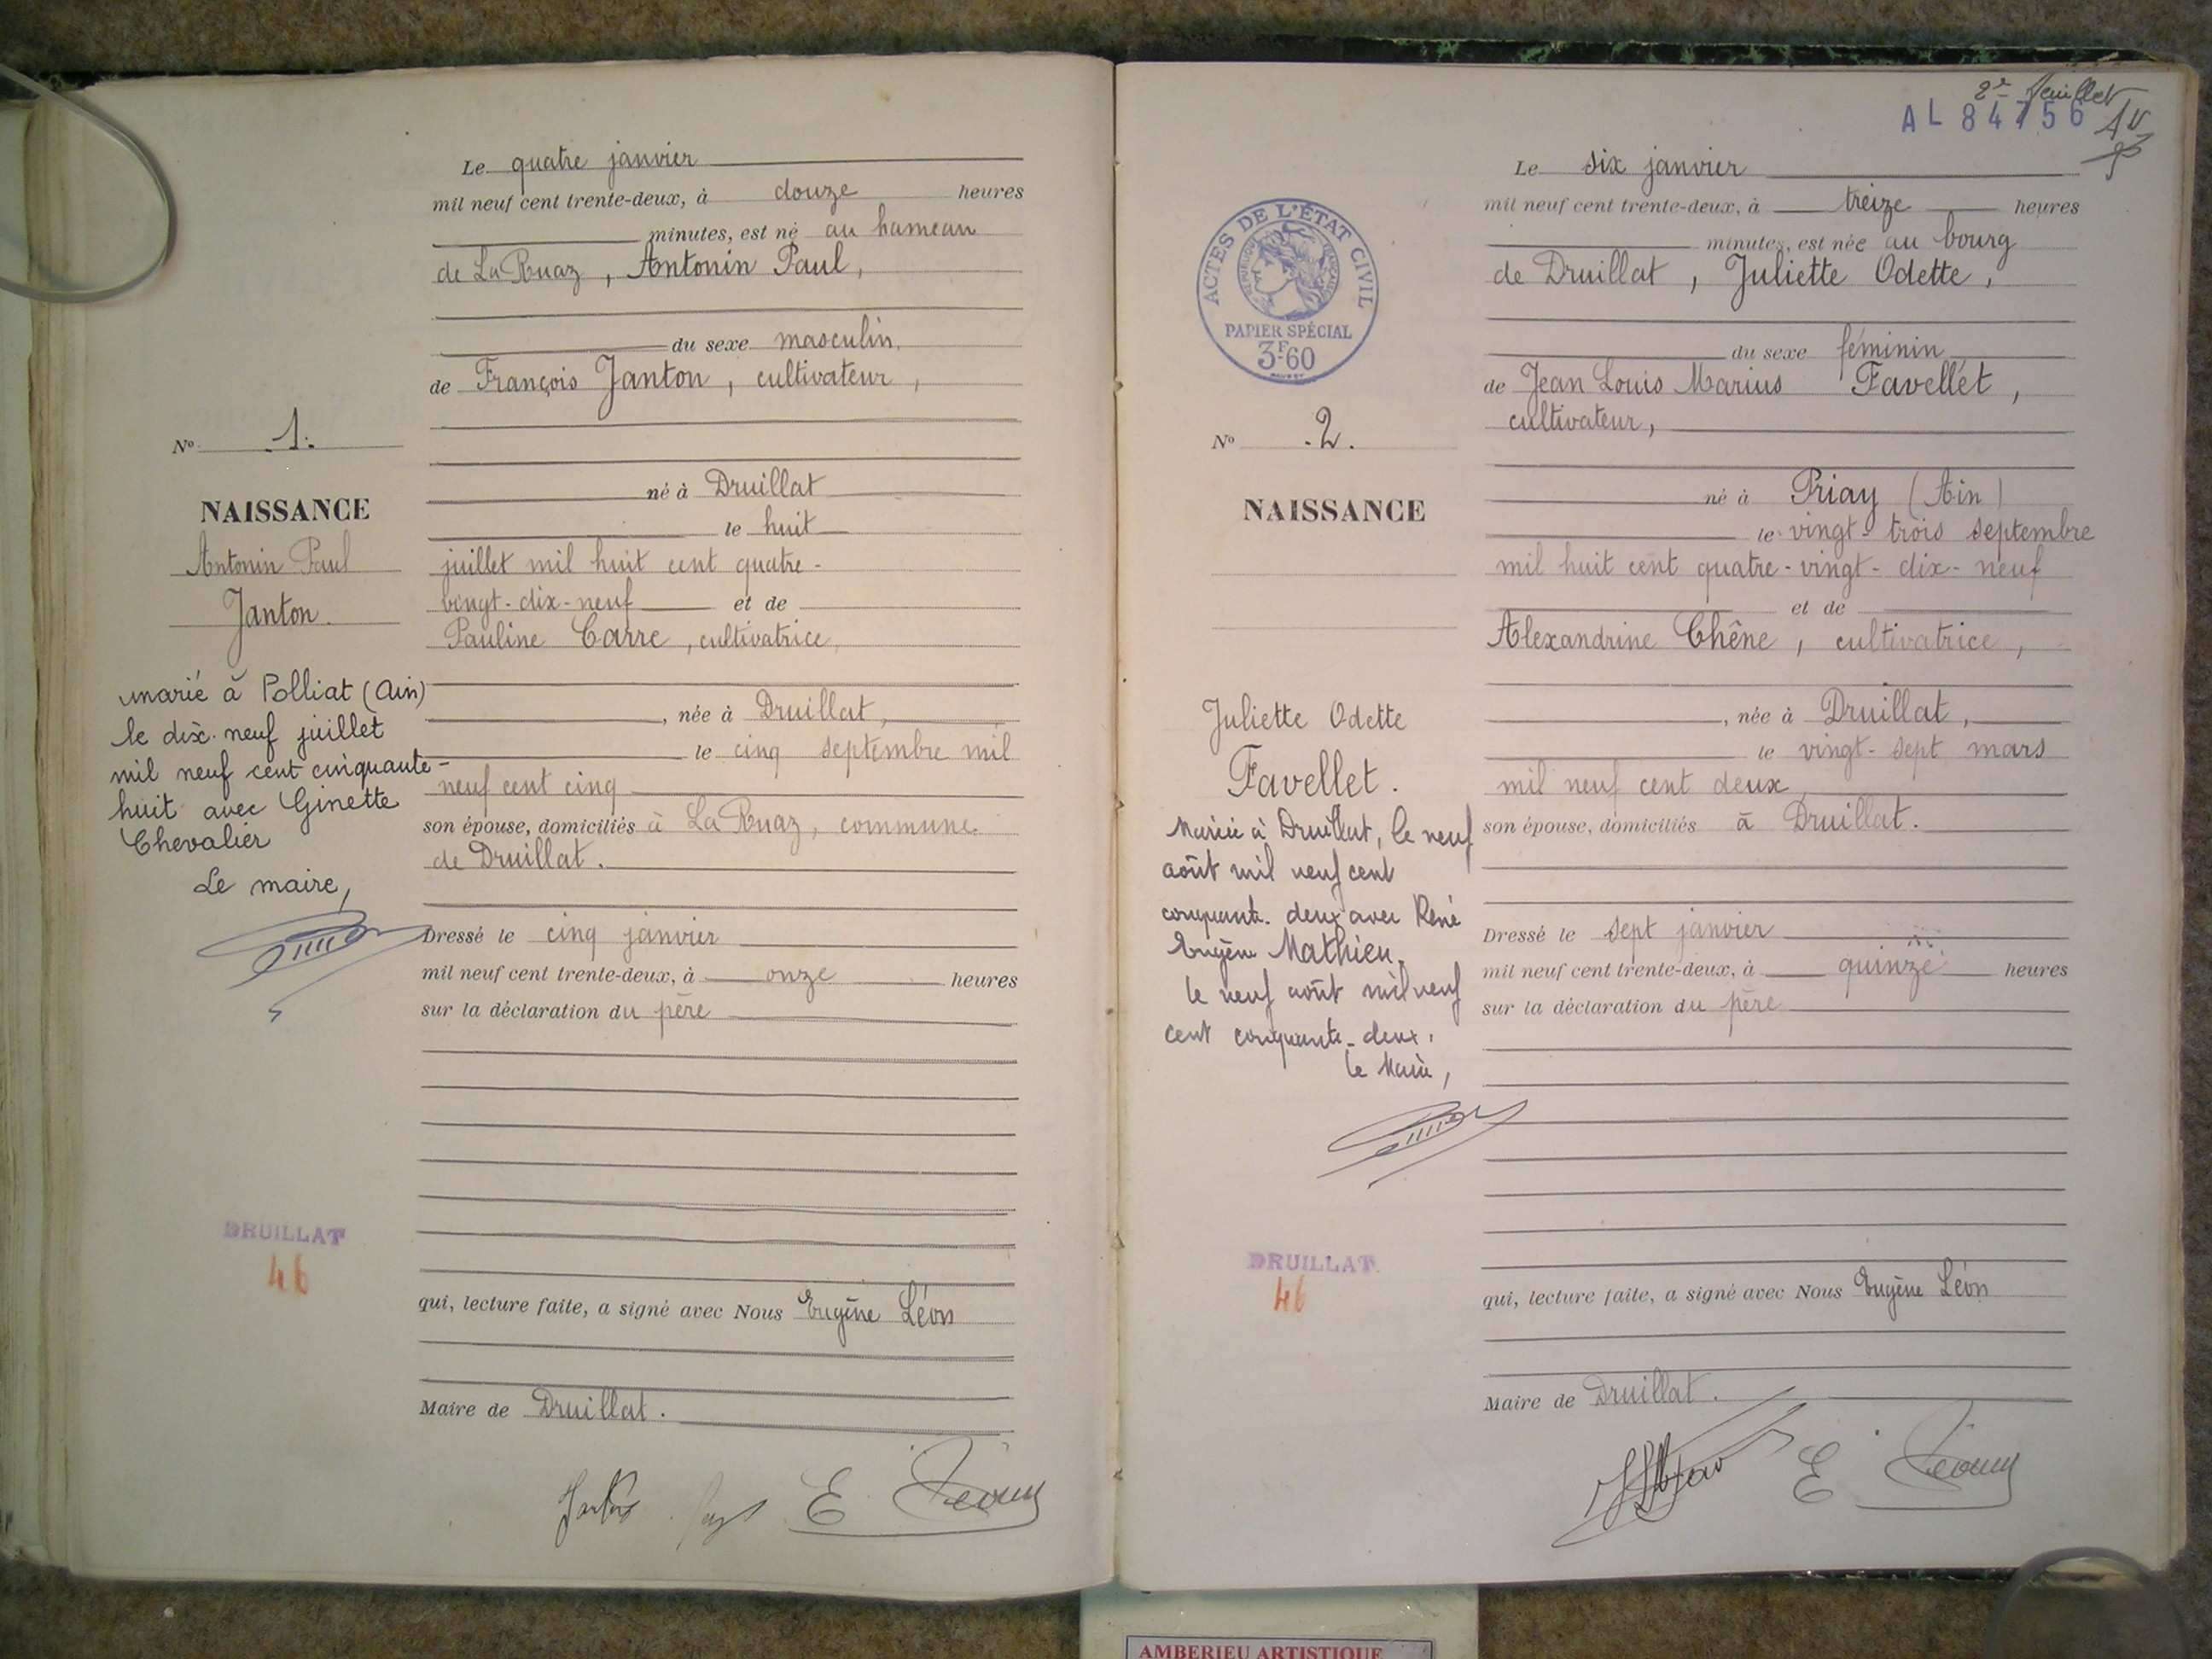 Le quatre janvier
mil neuf cent trente-deux, à douze heures
minutes, est né au hameau
de La Ruaz, Antonin Paul,
du sexe masculin,
de François Janton, cultivateur,
No 1.
né à Druillat
NAISSANCE
le huit
Antonin Paul
juillet mil huit cent quatre-
Janton.
vingt-dix-neuf et de
Pauline Carre, cultivatrice,
marié à Polliat (Ain)
le dix-neuf juillet
mil neuf cent cinquante-
huit avec Ginette
Chevalier
Le maire,
, née à Druillat,
le cinq septembre mil
neuf cent cinq
son épouse, domiciliés à La Ruaz, commune
de Druillat.
Dressé le cinq janvier
mil neuf cent trente-deux, à onze heures
sur la déclaration du père
DRUILLAT
46
qui, lecture faite, a signé avec Nous Eugène Léon
Maire de Druillat.
2e feuillet
AL 84756
Le six janvier
mil neuf cent trente-deux, à treize heures
minutes, est née au bourg
de Druillat, Juliette Odette,
ACTES DE L'ÉTAT CIVIL
RÉPUBLIQUE FRANÇAISE
PAPIER SPÉCIAL
3F60
du sexe féminin
de Jean Louis Marius Favellet,
cultivateur,
No .2.
né à Priay (Ain)
NAISSANCE
le vingt-trois septembre
mil huit cent quatre-vingt-dix-neuf
et de
Alexandrine Chêne, cultivatrice,
Juliette Odette
Favellet.
Mariée à Druillat, le neuf
août mil neuf cent
cinquante-deux avec René
Eugène Mathieu.
le neuf août mil neuf
cent cinquante-deux.
le Maire,
, née à Druillat,
le vingt-sept mars
mil neuf cent deux
son épouse, domiciliés à Druillat.
Dressé le sept janvier
mil neuf cent trente-deux, à quinze heures
sur la déclaration du père
DRUILLAT
46
qui, lecture faite, a signé avec Nous Eugène Léon
Maire de Druillat.
AMBERIEU ARTISTIQUE